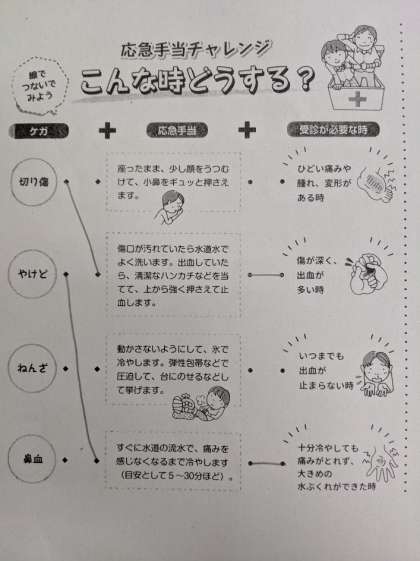 応急手当チャレンジ
線で
つないで
みよう
こんな時どうする？
ケガ
応急手当
受診が必要な時
切り傷
座ったまま、少し顔をうつむ
けて、小鼻をギュッと押さえ
ます。
ひどい痛みや
腫れ、変形が
ある時
やけど
傷口が汚れていたら水道水で
よく洗います。出血していた
ら、清潔なハンカチなどを当
てて、上から強く押さえて止
血します。
傷が深く、
出血が
多い時
ねんざ
動かさないようにして、氷で
冷やします。弾性包帯などで
圧迫して、台にのせるなどし
て挙げます。
いつまでも
出血が
止まらない時
鼻血
すぐに水道の流水で、痛みを
感じなくなるまで冷やします
（目安として５～30分ほど）。
十分冷やしても
痛みがとれず、
大きめの
水ぶくれができた時